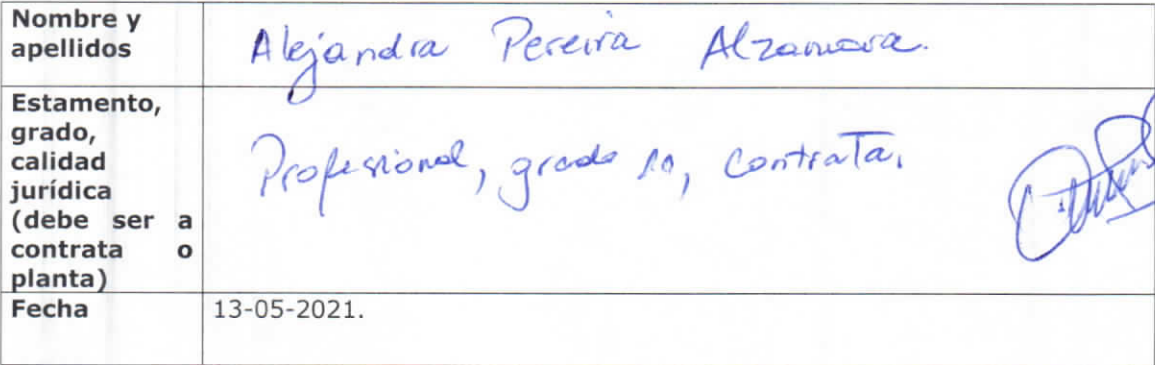 Nombre y
apellidos
Alejandra Pereira Alzamora.
Estamento,
grado,
calidad
jurídica
(debe ser a
contrata o
planta)
Profesional, grado 10, contrata.
Fecha
13-05-2021.